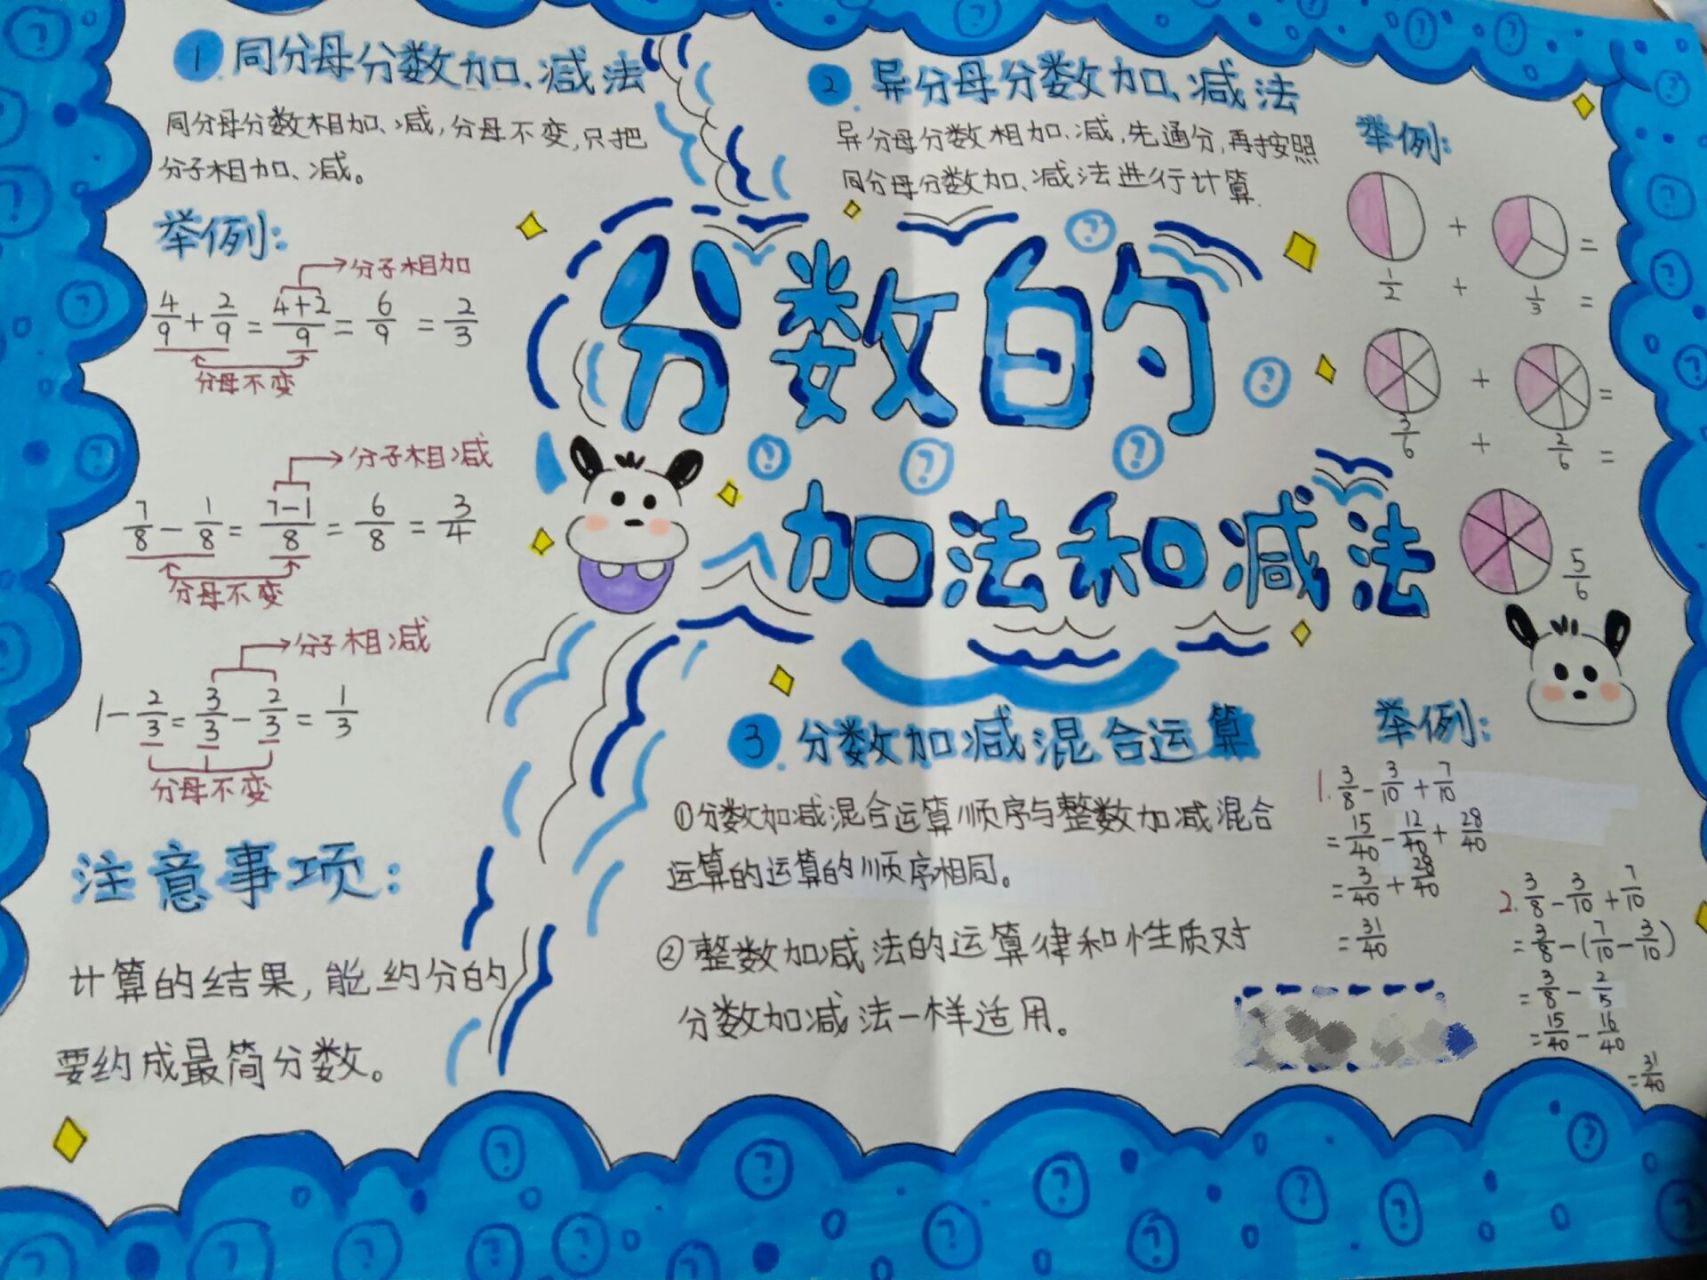 1 同分母分数加、减法
同分母分数相加、减,分母不变,只把
分子相加、减。
举例:
分子相加
4/9 + 2/9 = 4+2/9 = 6/9 = 2/3
分母不变
分子相减
7/8 - 1/8 = 7-1/8 = 6/8 = 3/4
分母不变
分子相减
1 - 2/3 = 3/3 - 2/3 = 1/3
分母不变
注意事项:
计算的结果,能约分的
要约成最简分数。
分数的
加法和减法
2 异分母分数加、减法
异分母分数相加、减,先通分,再按照
同分母分数加、减法进行计算.
举例:
+ =
1/2 + 1/3 =
+ =
3/6 + 2/6 =
5/6
3 分数加减混合运算
①分数加减混合运算顺序与整数加减混合
运算的运算的顺序相同。
②整数加减法的运算律和性质对
分数加减法一样适用。
举例:
1. 3/8 - 3/10 + 7/10
= 15/40 - 12/40 + 28/40
= 3/40 + 28/40
= 31/40
2. 3/8 - 3/10 + 7/10
= 3/8 - (7/10 - 3/10)
= 3/8 - 2/5
= 15/40 - 16/40
= 31/40